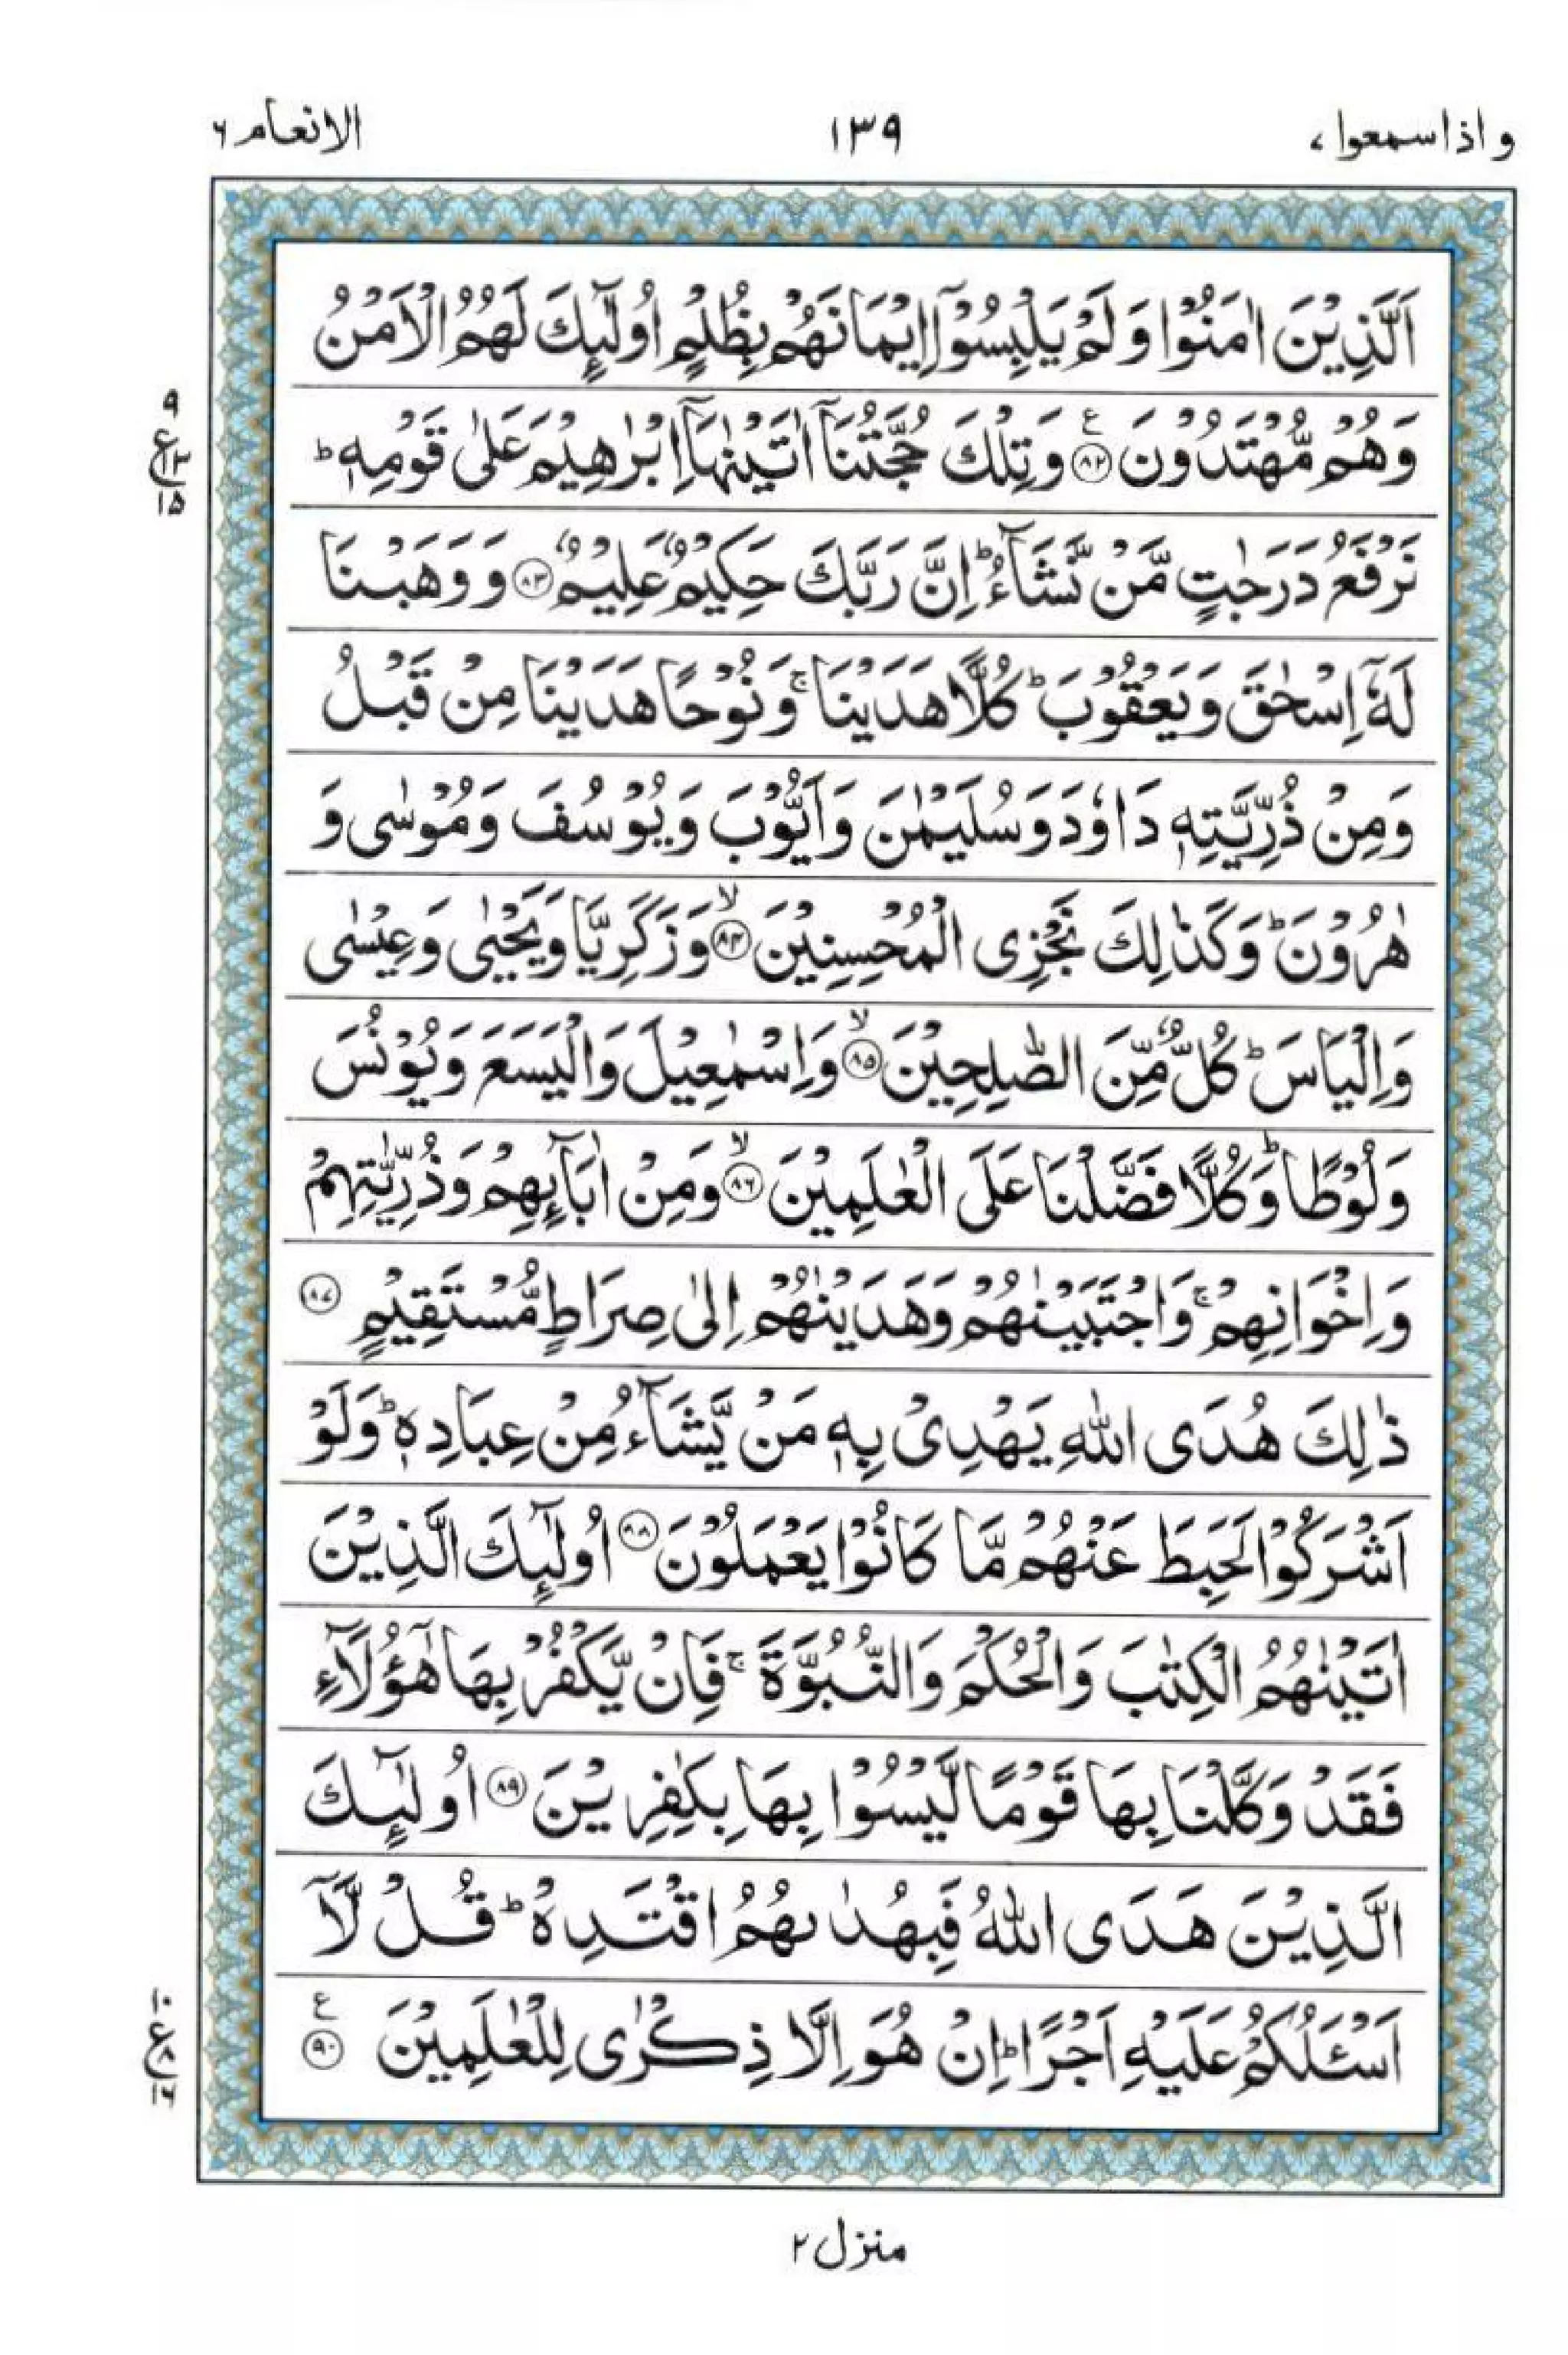 و اذا سمعوا ٧
١٣٩
الانعام ٦
اَلَّذِيْنَ اٰمَنُوْا وَلَمْ يَلْبِسُوْۤا اِيْمَانَهُمْ بِظُلْمٍ اُولٰٓئِكَ لَهُمُ الْاَمْنُ
وَهُمْ مُّهْتَدُوْنَ ﴿٨٢﴾ ع وَتِلْكَ حُجَّتُنَاۤ اٰتَيْنٰهَاۤ اِبْرٰهِيْمَ عَلٰى قَوْمِهٖ ؕ
نَرْفَعُ دَرَجٰتٍ مَّنْ نَّشَآءُ ؕ اِنَّ رَبَّكَ حَكِيْمٌ عَلِيْمٌ ﴿٨٣﴾ وَوَهَبْنَا
لَهٗۤ اِسْحٰقَ وَيَعْقُوْبَ ؕ كُلًّا هَدَيْنَا ۚ وَنُوْحًا هَدَيْنَا مِنْ قَبْلُ
وَمِنْ ذُرِّيَّتِهٖ دَاوٗدَ وَسُلَيْمٰنَ وَاَيُّوْبَ وَيُوْسُفَ وَمُوْسٰى وَ
هٰرُوْنَ ؕ وَكَذٰلِكَ نَجْزِى الْمُحْسِنِيْنَ ۙ﴿٨٤﴾ وَزَكَرِيَّا وَيَحْيٰى وَعِيْسٰى
وَاِلْيَاسَ ؕ كُلٌّ مِّنَ الصّٰلِحِيْنَ ۙ﴿٨٥﴾ وَاِسْمٰعِيْلَ وَالْيَسَعَ وَيُوْنُسَ
وَلُوْطًا ؕ وَكُلًّا فَضَّلْنَا عَلَى الْعٰلَمِيْنَ ۙ﴿٨٦﴾ وَمِنْ اٰبَآئِهِمْ وَذُرِّيّٰتِهِمْ
وَاِخْوَانِهِمْ ۚ وَاجْتَبَيْنٰهُمْ وَهَدَيْنٰهُمْ اِلٰى صِرَاطٍ مُّسْتَقِيْمٍ ﴿٨٧﴾
ذٰلِكَ هُدَى اللّٰهِ يَهْدِىْ بِهٖ مَنْ يَّشَآءُ مِنْ عِبَادِهٖ ؕ وَلَوْ
اَشْرَكُوْا لَحَبِطَ عَنْهُمْ مَّا كَانُوْا يَعْمَلُوْنَ ﴿٨٨﴾ اُولٰٓئِكَ الَّذِيْنَ
اٰتَيْنٰهُمُ الْكِتٰبَ وَالْحُكْمَ وَالنُّبُوَّةَ ۚ فَاِنْ يَّكْفُرْ بِهَا هٰۤؤُلَآءِ
فَقَدْ وَكَّلْنَا بِهَا قَوْمًا لَّيْسُوْا بِهَا بِكٰفِرِيْنَ ﴿٨٩﴾ اُولٰٓئِكَ
الَّذِيْنَ هَدَى اللّٰهُ فَبِهُدٰىهُمُ اقْتَدِهْ ؕ قُلْ لَّاۤ
اَسْـَٔلُكُمْ عَلَيْهِ اَجْرًا ؕ اِنْ هُوَ اِلَّا ذِكْرٰى لِلْعٰلَمِيْنَ ﴿٩٠﴾ ع
٩
ع ١٣
١٥
١٠
ع ٨
١٦
منزل ٢